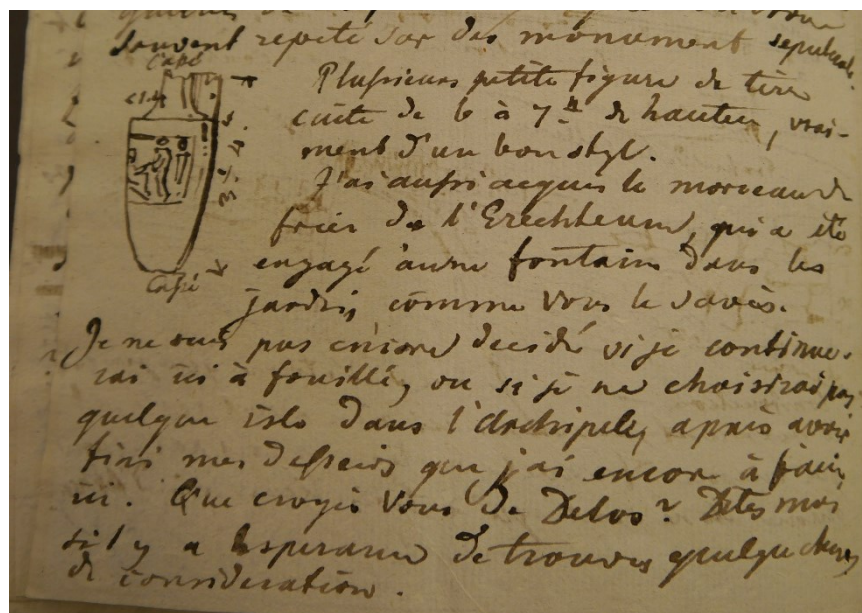 souvent repeté sur des monument sepulcral.
Capé
Plusieurs petite figure de terre
cuite de 6 à 7 de hauteur, vrai-
ment d'un bon styl.
J'ai aussi acquis le morceau de
fries de l'Erechtheum, qui a été
engagé à une fontaine dans les
Capé
jardin, comme vous le savés.
Je ne suis pas encore decidé si je continue-
rai ici à fouillé, ou si je ne choisirai pas
quelque isle dans l'Archipele, aprais avoir
fini mes desseins que j'ai encor à faire
ici. Que croyis vous de Delos? Dites moi
si l y a esperance de trouver quelque chose
de consideration.